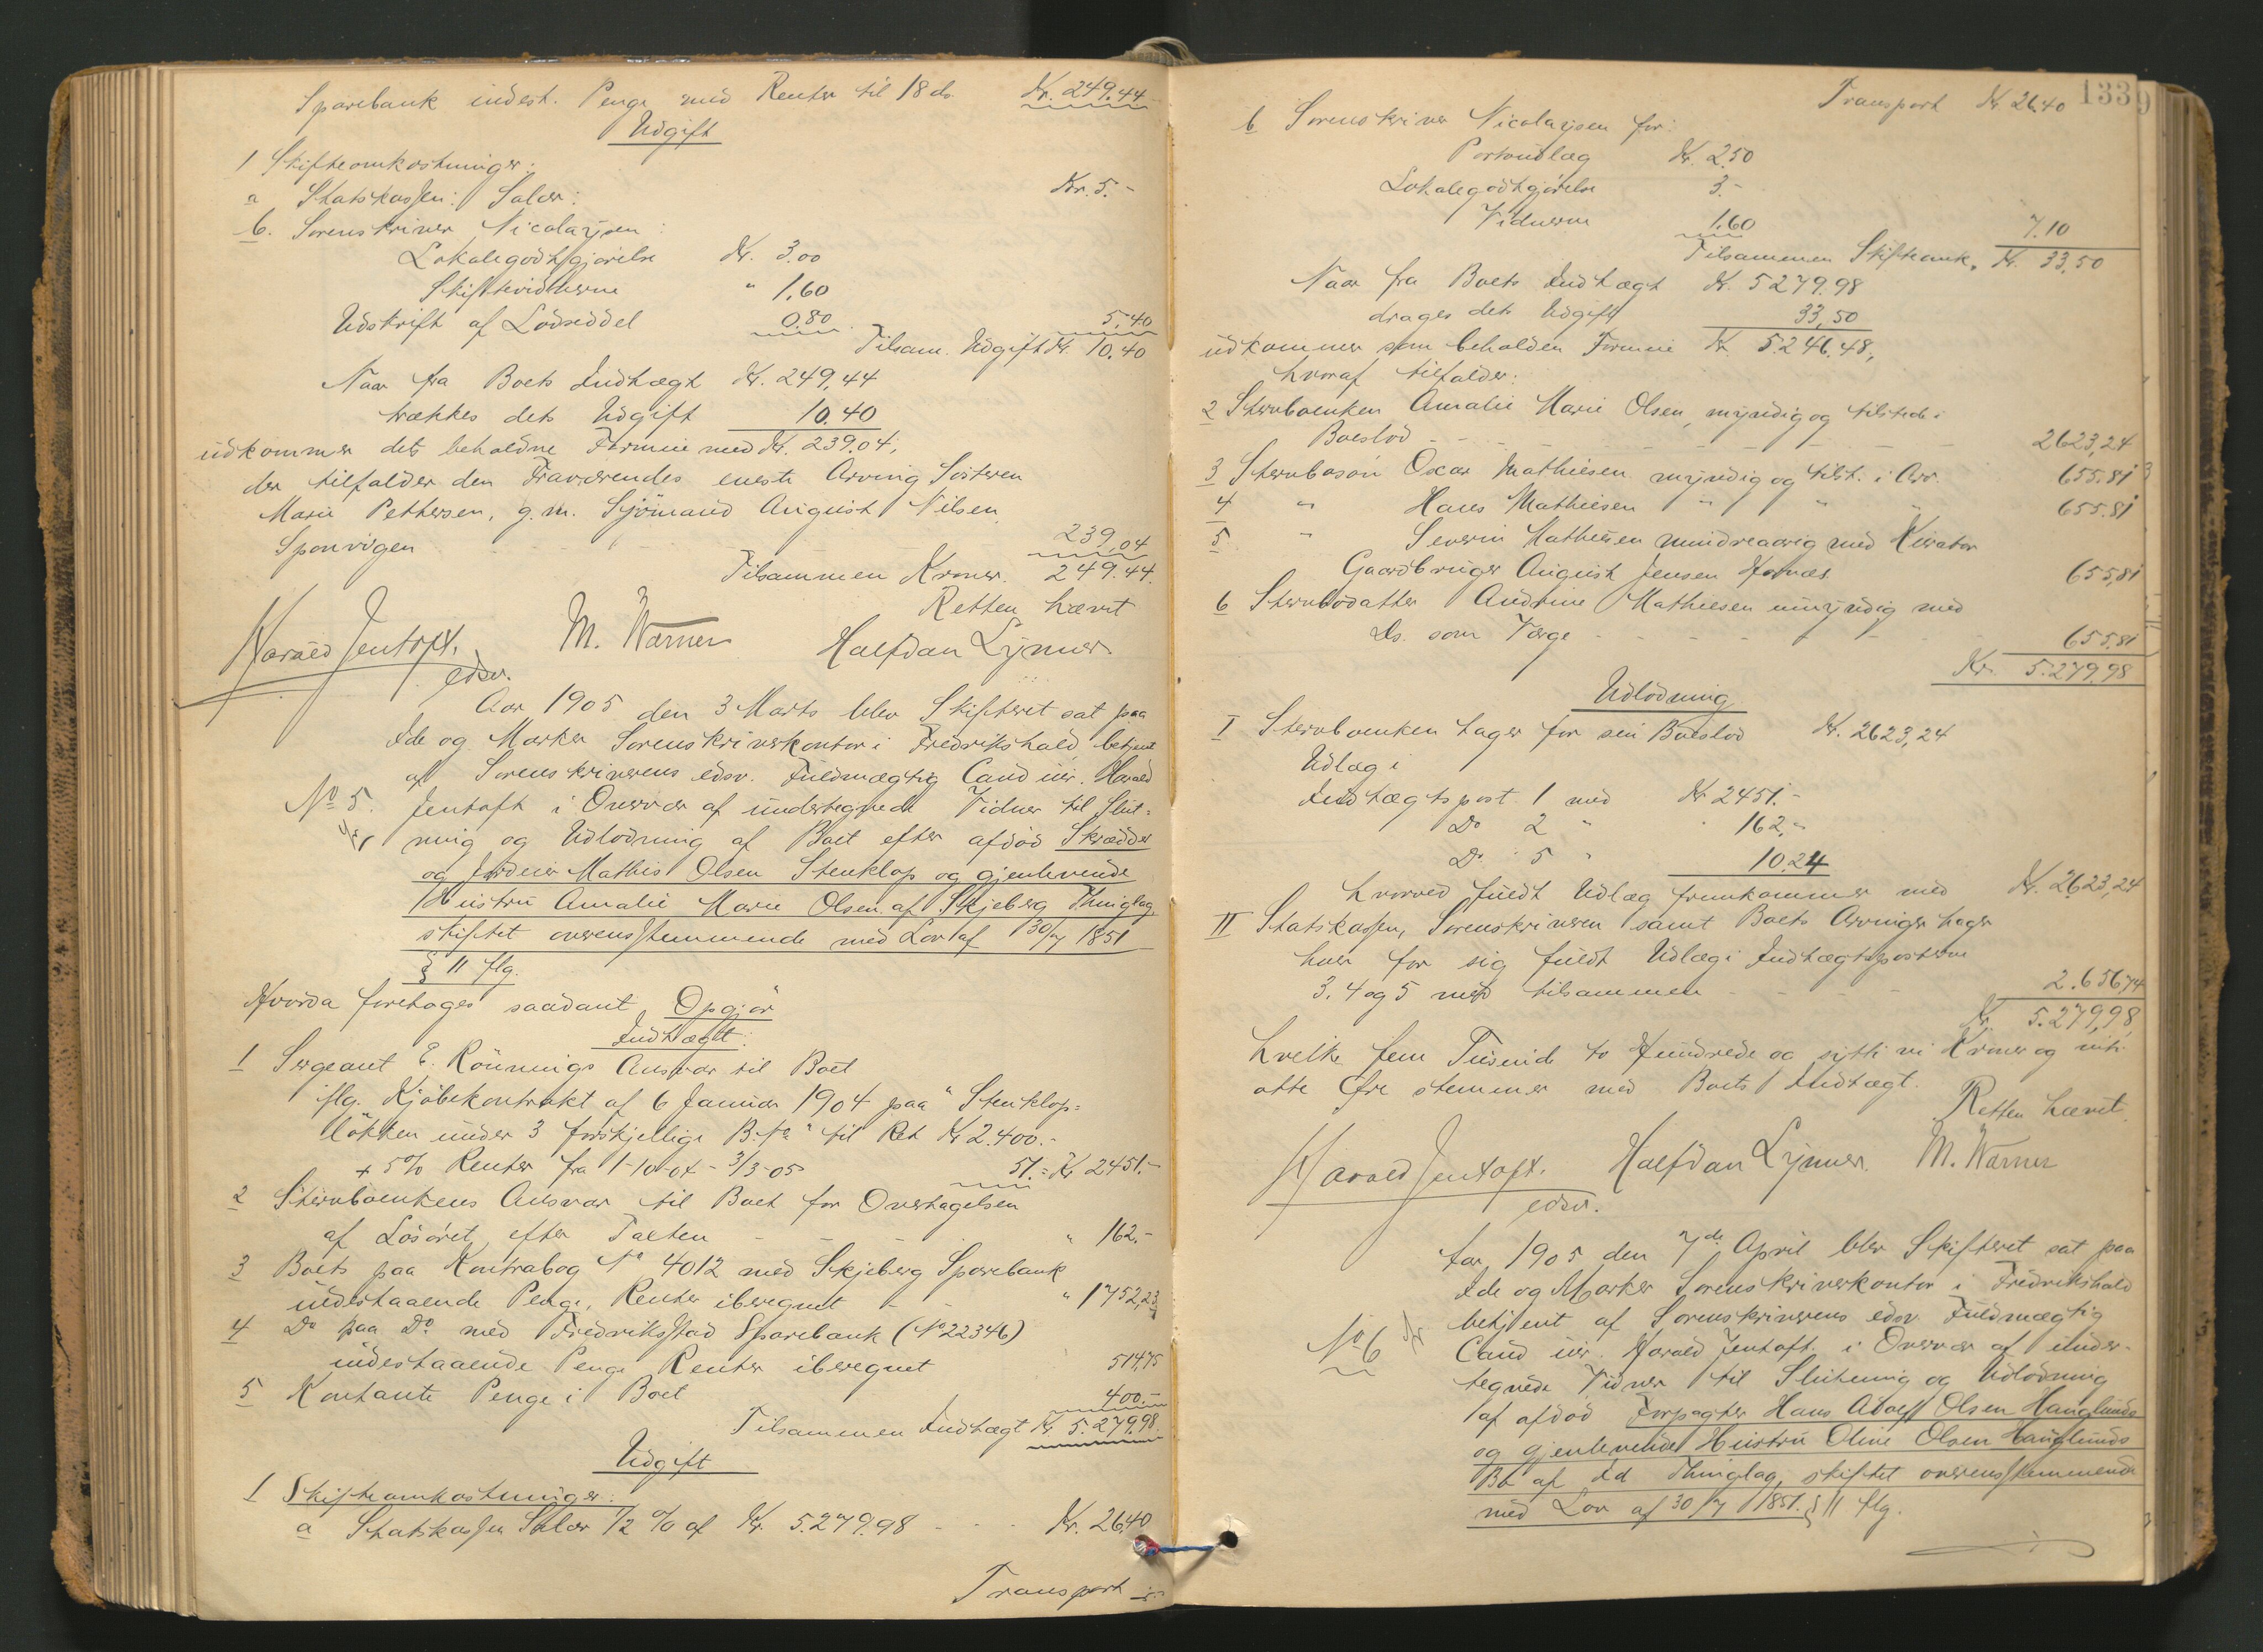 Sparebank indest. Penge med Renter til 18 ds. Kr. 249.44
Udgift
1 Skifteomkostninger:
a Statskassen: Salær: Kr. 5.-
b. Sorenskriver Nicolaysen:
Lokalegodtgjørelse Kr. 3.00
Skiftevidnerne " 1,60
Udskrift af Lodseddel 0.80 5,40
Tilsam. Udgift Kr. 10,40
Naar fra Boets Indtægt Kr. 249,44
trækkes dets Udgift 10.40
udkommer dets beholdne Formue med Kr. 239.04,
der tilfalder den Fraværendes eneste Arving Søsteren
Marie Pettersen, g.m. Sjömand August Nilsen
Sponvigen - - - - - 239,04
Tilsammen Kroner. 249.44.
Retten hævet
Harald Jentoft. M. Warner Halfdan Lynner.
edsv.
Aar 1905 den 3 Marts blev Skifteret sat paa
Ide og Marker Sorenskriverkontor i Fredrikshald betjent
af Sorenskriverens edsv. Fuldmægtig Cand jur. Harald
No 5. Jentoft i Overvær af undertegnede Vidner til Slut=
ning og Udlodning af Boet efter afdød Skrædder
og Jordeier Mathis Olsen Stenklop og gjenlevende
Hustru Amalie Marie Olsen af Skjeberg Thinglag,
skiftet overensstemmende med Lov af 30/7 1851
§ 11 flg.
Hvorda foretoges saadant Opgjör
Indtægt:
1 Sergeant E. Rönnings Ansvar til Boet
iflg. Kjöbekontrakt af 6 Januar 1904 paa "Stenklop=
lökken under 3 forskjellige B.No" til Rest Kr 2.400.-
+ 5% Renter fra 1-10-04 - 3/3-05 51.= Kr 2451.-
2 Stervboenkens Ansvar til Boet for Overtagelsen
af Lösöret efter Taxten - - - " 162.-
3 Boets paa Kontrabog No 4012 med Skjeberg Sparebank
indestaaende Penge, Renter iberegnet - - " 1752,23
4 Do paa Do. med Fredriksstad Sparebank (No 22346)
indestaaende Penge Renter iberegnet 514,75
5 Kontante Penge i Boet 400.-
Tilsammen Indtægt Kr. 5.279.98
Udgift
1 Skifteomkostninger:
a Statskassen Salær 1/2 % af Kr. 5.279.98 - - - Kr. 26,40
Transport
133
9
Transport Kr. 26.40
b Sorenskriver Nicolaysen for:
Portoudlæg Kr. 2.50
Lokalegodtgjörelse 3.-
Vidnerne 1.60 7.10
Tilsammen Skifteomk. Kr. 33,50
Naar fra Boets Indtægt Kr. 5279.98
drages dets Udgift 33,50
udkommer som beholden Formue Kr. 5.246.48,
hvoraf tilfalder:
2 Stervboenken Amalie Marie Olsen, myndig og tilstede i
Boeslod - - - - - - - 2623,24
3 Stervbosön Oscar Mathiesen myndig og tilst. i Arv. 655.81
4 " Hans Mathiesen " " " 655.81
5 " Severin Mathiesen mindreaarig med Kurator
Gaardbruger August Jensen Hornæs 655,81
6 Stervbodatter Andrine Mathiesen umyndig med
Ds. som Værge - - - - - 655,81
Kr. 5.279.98
Udlodning
I Stervboenken tager for sin Boeslod Kr. 2623,24
Udlæg i
Indtægtspost 1 med Kr 2451.-
Do 2 " 162,-
Do 5 " 10.24
hvorved fuldt Udlæg fremkommer med Kr. 2623,24
II Statskassen, Sorenskriveren samt Boets Arvinger tager
hver for sig fuldt Udlæg i Indtægtsposterne
3. 4 og 5 med tilsammen - - - - 2.656,74
Kr. 5.279,98,
hvelke fem Tusind to Hundrede og sytti ni Kroner og nitti
otte Øre stemmer med Boets Indtægt.
Retten hævet
Harald Jentoft. Halfdan Lynner. M. Warner
edsv.
Aar 1905 den 7de April blev Skifteret sat paa
Ide og Marker Sorenskriverkontor i Fredrikshald
betjent af Sorenskriverens edsv Fuldmægtig
No 6 Cand jur. Harald Jentoft i Overvær af under-
tegnede Vidner til Slutning og Udlodning
af afdöd Forpagter Hans Adolf Olsen Hauglunds
og gjenlevende Hustru Oline Olsen Hauglunds
Bo af Id Thinglag, skiftet overensstemmende
med Lov af 30/7 1851. § 11 flg.